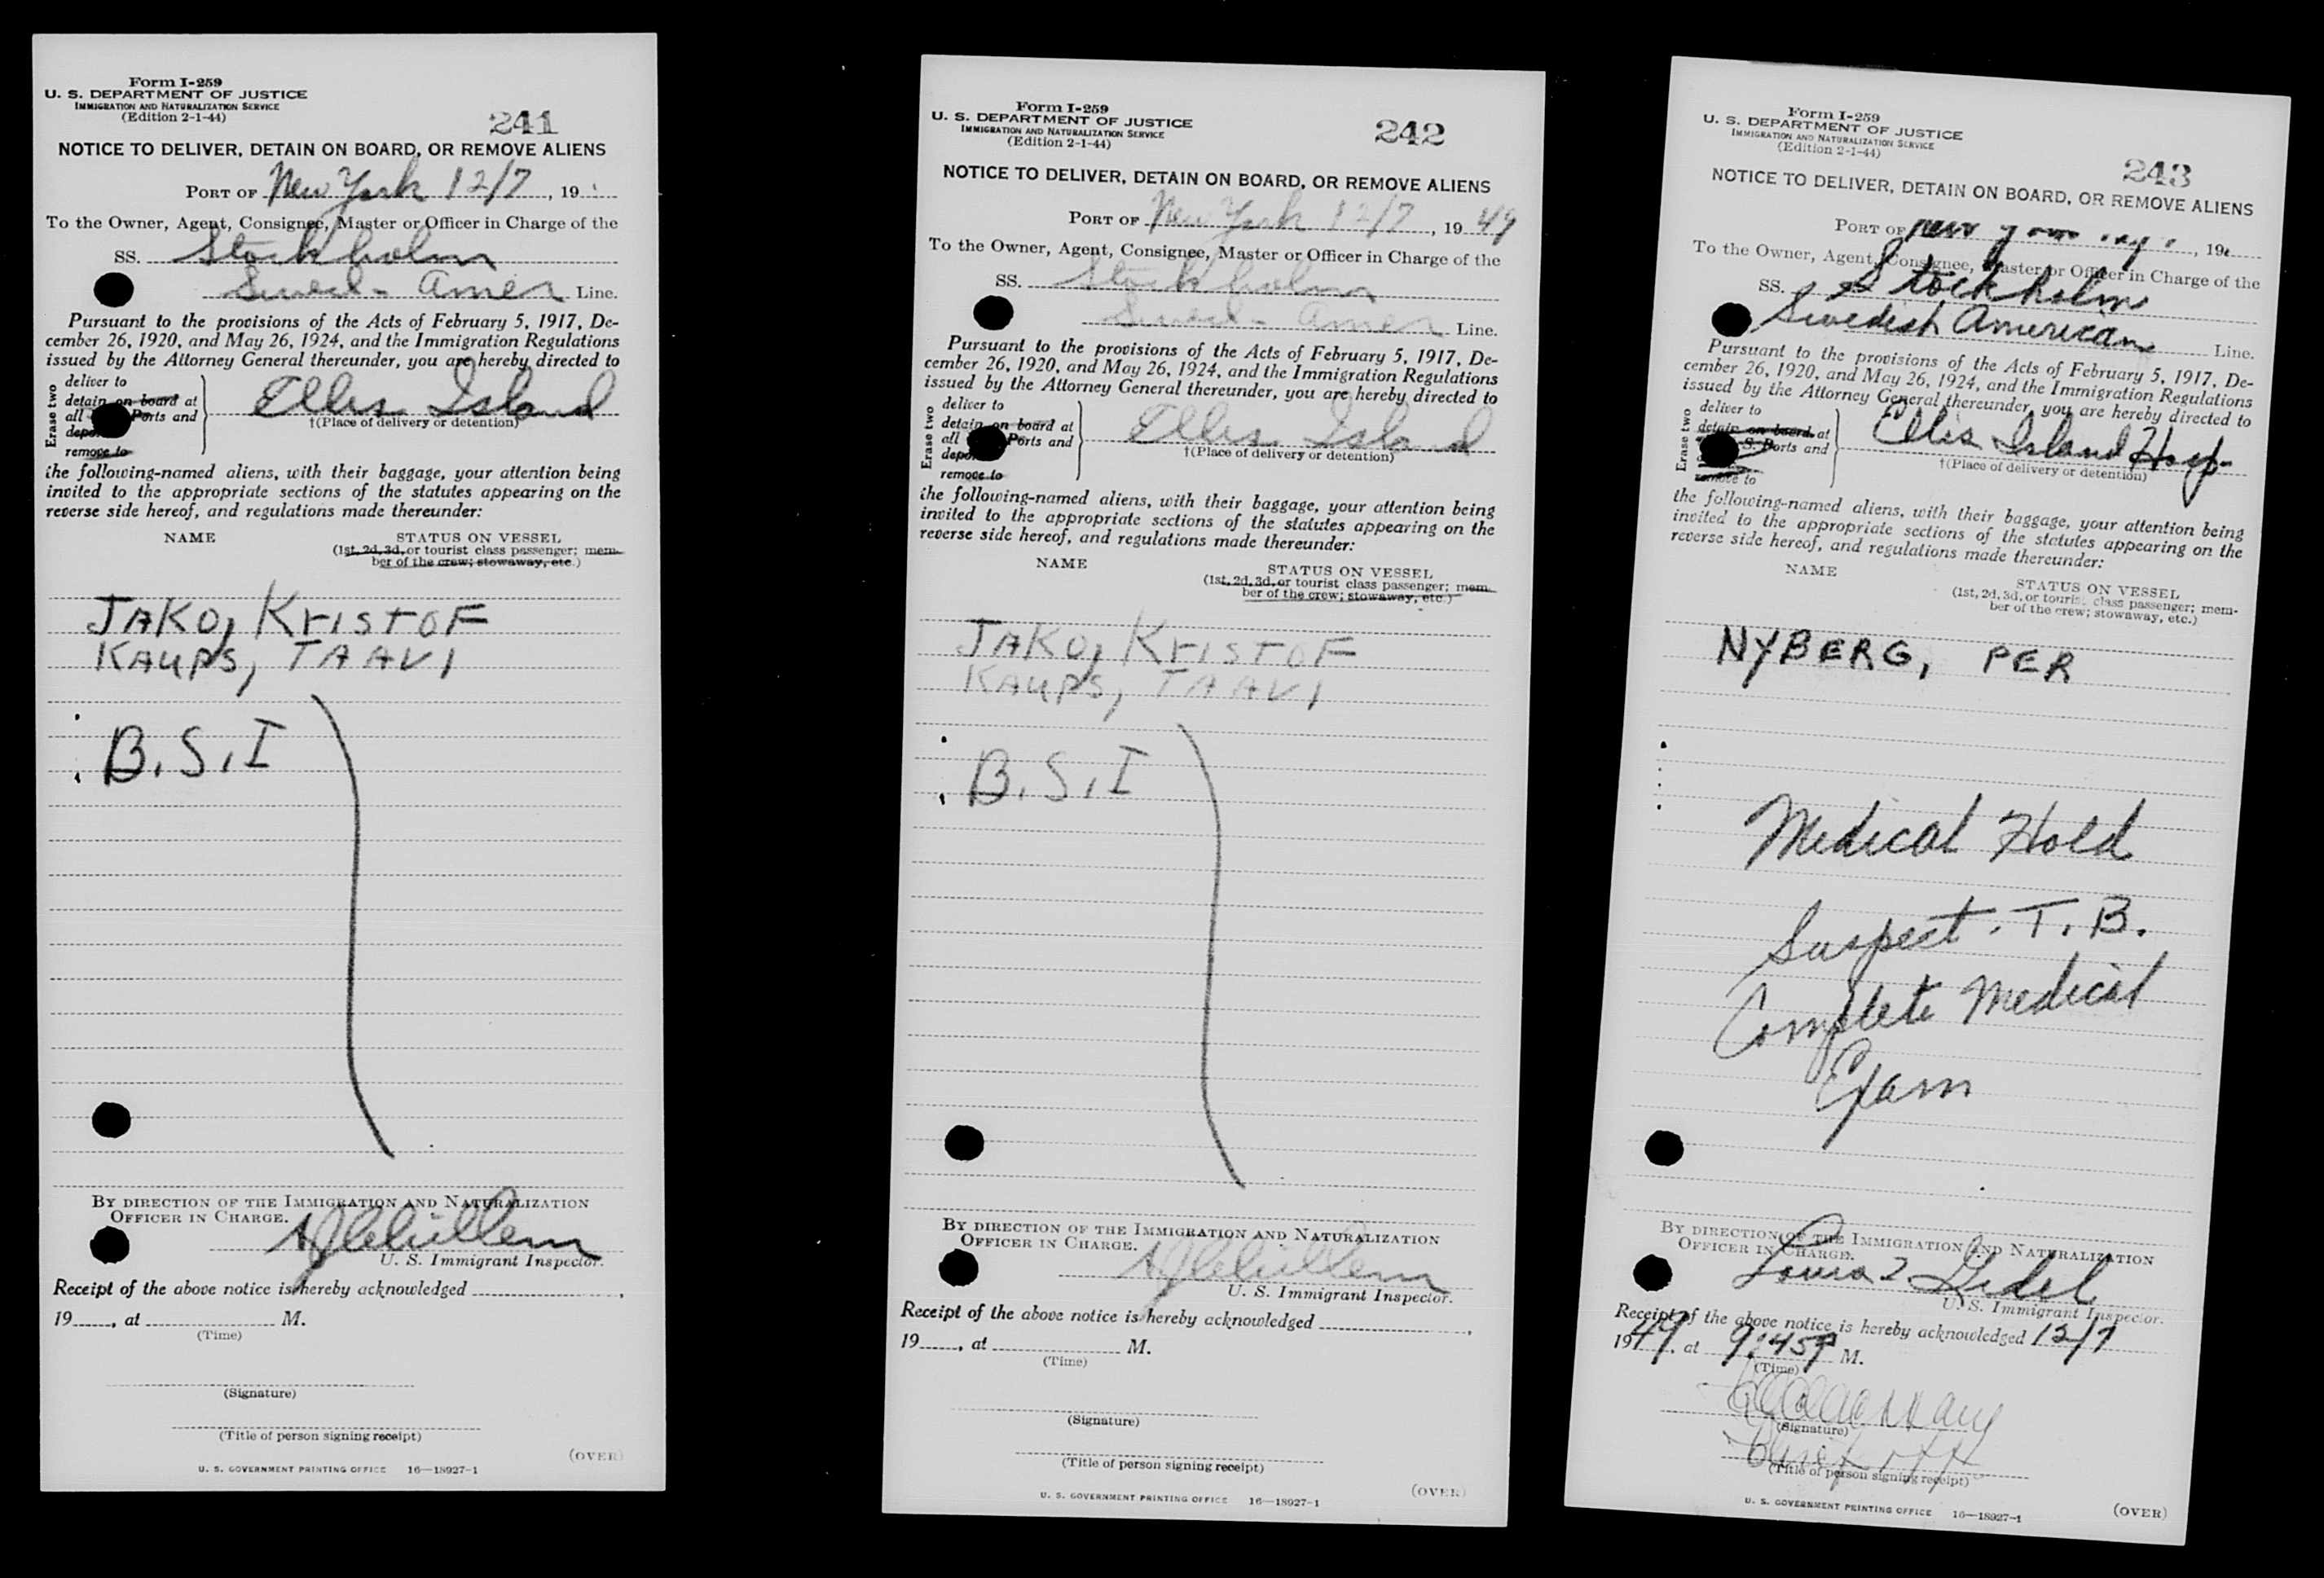 Form I-259
U. S. DEPARTMENT OF JUSTICE
IMMIGRATION AND NATURALIZATION SERVICE
(Edition 2-1-44)
241
NOTICE TO DELIVER, DETAIN ON BOARD, OR REMOVE ALIENS
PORT OF New York 12/7, 19
To the Owner, Agent, Consignee, Master or Officer in Charge of the
SS. Stockholm
Swed- Amer Line.
Pursuant to the provisions of the Acts of February 5, 1917, De-
cember 26, 1920, and May 26, 1924, and the Immigration Regulations
issued by the Attorney General thereunder, you are hereby directed to
Erase two
deliver to
detain on board at
all Ports and
remove to
Ellis Island
†(Place of delivery or detention)
the following-named aliens, with their baggage, your attention being
invited to the appropriate sections of the statutes appearing on the
reverse side hereof, and regulations made thereunder:
NAME STATUS ON VESSEL
(1st, 2d, 3d, or tourist class passenger; mem-
ber of the crew; stowaway, etc.)
JAKO, KRISTOF
KAUPS, TAAVI
B.S.I
BY DIRECTION OF THE IMMIGRATION AND NATURALIZATION
OFFICER IN CHARGE.
U. S. Immigrant Inspector.
Receipt of the above notice is hereby acknowledged
19 , at M.
(Time)
(Signature)
(Title of person signing receipt)
(OVER)
U. S. GOVERNMENT PRINTING OFFICE 16—18927-1
Form I-259
U. S. DEPARTMENT OF JUSTICE
IMMIGRATION AND NATURALIZATION SERVICE
(Edition 2-1-44)
242
NOTICE TO DELIVER, DETAIN ON BOARD, OR REMOVE ALIENS
PORT OF New York 12/7, 19 49
To the Owner, Agent, Consignee, Master or Officer in Charge of the
SS. Stockholm
Swed- Amer Line.
Pursuant to the provisions of the Acts of February 5, 1917, De-
cember 26, 1920, and May 26, 1924, and the Immigration Regulations
issued by the Attorney General thereunder, you are hereby directed to
Erase two
deliver to
detain on board at
all Ports and
remove to
Ellis Island
†(Place of delivery or detention)
the following-named aliens, with their baggage, your attention being
invited to the appropriate sections of the statutes appearing on the
reverse side hereof, and regulations made thereunder:
NAME STATUS ON VESSEL
(1st, 2d, 3d, or tourist class passenger; mem-
ber of the crew; stowaway, etc.)
JAKO, KRISTOF
KAUPS, TAAVI
B.S.I
BY DIRECTION OF THE IMMIGRATION AND NATURALIZATION
OFFICER IN CHARGE.
U. S. Immigrant Inspector.
Receipt of the above notice is hereby acknowledged
19 , at M.
(Time)
(Signature)
(Title of person signing receipt)
(OVER)
U. S. GOVERNMENT PRINTING OFFICE 16—18927-1
Form I-259
U. S. DEPARTMENT OF JUSTICE
IMMIGRATION AND NATURALIZATION SERVICE
(Edition 2-1-44)
243
NOTICE TO DELIVER, DETAIN ON BOARD, OR REMOVE ALIENS
PORT OF New , 19
To the Owner, Agent, Consignee, Master or Officer in Charge of the
SS. Stockholm
Swedish American Line.
Pursuant to the provisions of the Acts of February 5, 1917, De-
cember 26, 1920, and May 26, 1924, and the Immigration Regulations
issued by the Attorney General thereunder, you are hereby directed to
Erase two
deliver to
detain on board at
S. Ports and
remove to
Ellis Island Hosp.
†(Place of delivery or detention)
the following-named aliens, with their baggage, your attention being
invited to the appropriate sections of the statutes appearing on the
reverse side hereof, and regulations made thereunder:
NAME STATUS ON VESSEL
(1st, 2d, 3d, or tourist class passenger; mem-
ber of the crew; stowaway, etc.)
NYBERG, PER
Medical Hold
Suspect. T. B.
Complete Medical
Exam
BY DIRECTION OF THE IMMIGRATION AND NATURALIZATION
OFFICER IN CHARGE.
U. S. Immigrant Inspector.
Receipt of the above notice is hereby acknowledged 12/7
1949, at 9:45P M.
(Time)
(Signature)
(Title of person signing receipt)
U. S. GOVERNMENT PRINTING OFFICE 16—18927-1
(OVER)